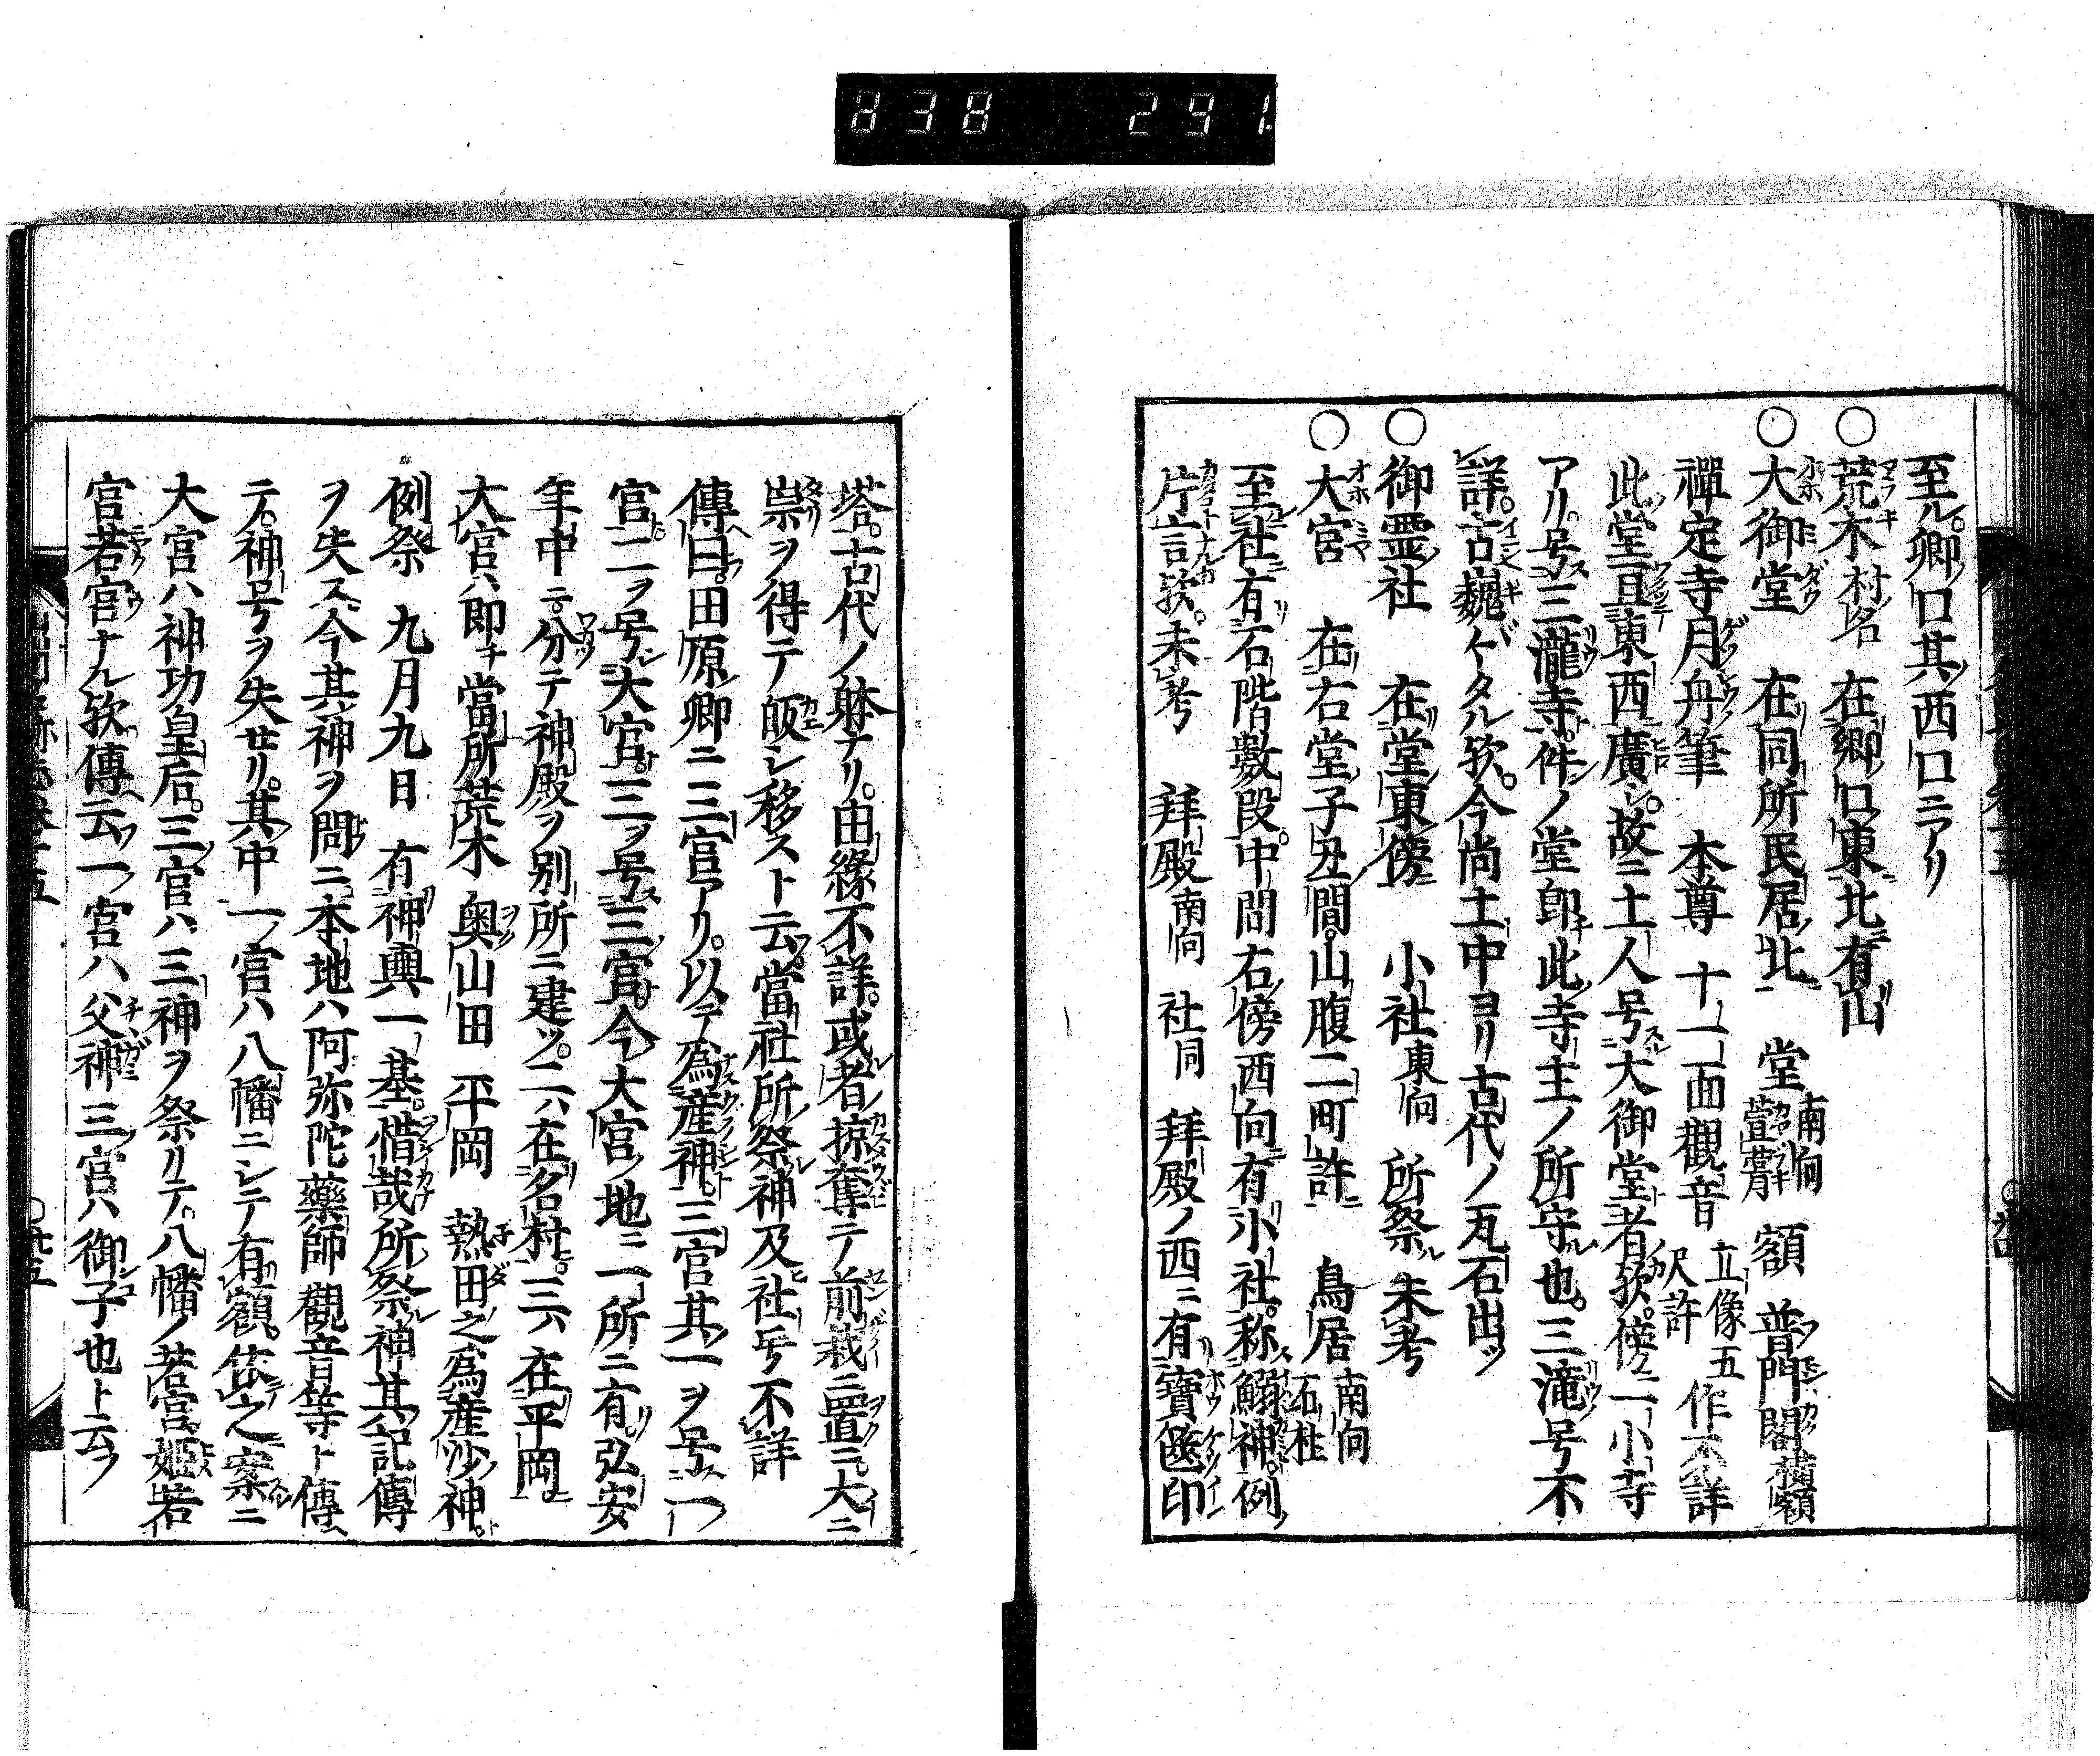 838 291
至ル。郷ノ口其ノ西ノ口ニアリ
○荒木村名 在郷ノ口東北有山
○大御堂 在同所民居ノ北 堂南向萱葺 額 普門閣横額
禪定寺月舟筆 本尊 十一面觀音 立像五尺許 作不詳
此ノ堂且東西廣シ。故ニ土人号大御堂者欤。傍ニ一小寺
アリ。号三瀧寺。件ノ堂即此ノ寺主ノ所守也。三滝号不
詳。古ヘ巍〱タル欤。今尚土中ヨリ古代ノ瓦石出ヅ
○御霊社 在堂ノ東傍 小社東向 所祭未考
○大宮 在右堂子丑間。山腹二町許 鳥居南向石柱
至社有石階數段。中間右傍西向有小社。称鰯神。例ノ
片言欤。未考 拜殿南向 社同 拜殿ノ西ニ有寶篋印
塔。古代ノ躰ナリ。由緣不詳。或者掠奪テ前栽ニ置ニ。大ニ
祟ヲ得テ皈シ移スト云。當社所祭神及社号不詳
傳曰。田原郷ニ三宮アリ。以テ為産神。三宮其一ヲ号一ノ
宮。二ヲ号大宮。三ヲ号三宮。今大宮ノ地ニ一所ニ有。弘安
年中ニ。分テ神殿ヲ別所ニ建ツ。二ハ在名村。三ハ在平岡。
大宮ハ即チ當所荒木 奥山田 平岡 熱田之為産沙神。
例祭 九月九日 有神輿一基。惜哉所祭神其ノ記傳
ヲ失ス。今其ノ神ヲ問ニ本地ハ阿弥陀藥師觀音等ト傳ヘ
テ。神号ヲ失セリ。其ノ中一ノ宮ハ八幡ニシテ有額。依之案ニ
大宮ハ神功皇后。三ノ宮ハ三神ヲ祭リテ。八幡ノ若宮。姫若
宮若宮ナル欤。傳云一ノ宮ハ父神三ノ宮ハ御子也ト云フ